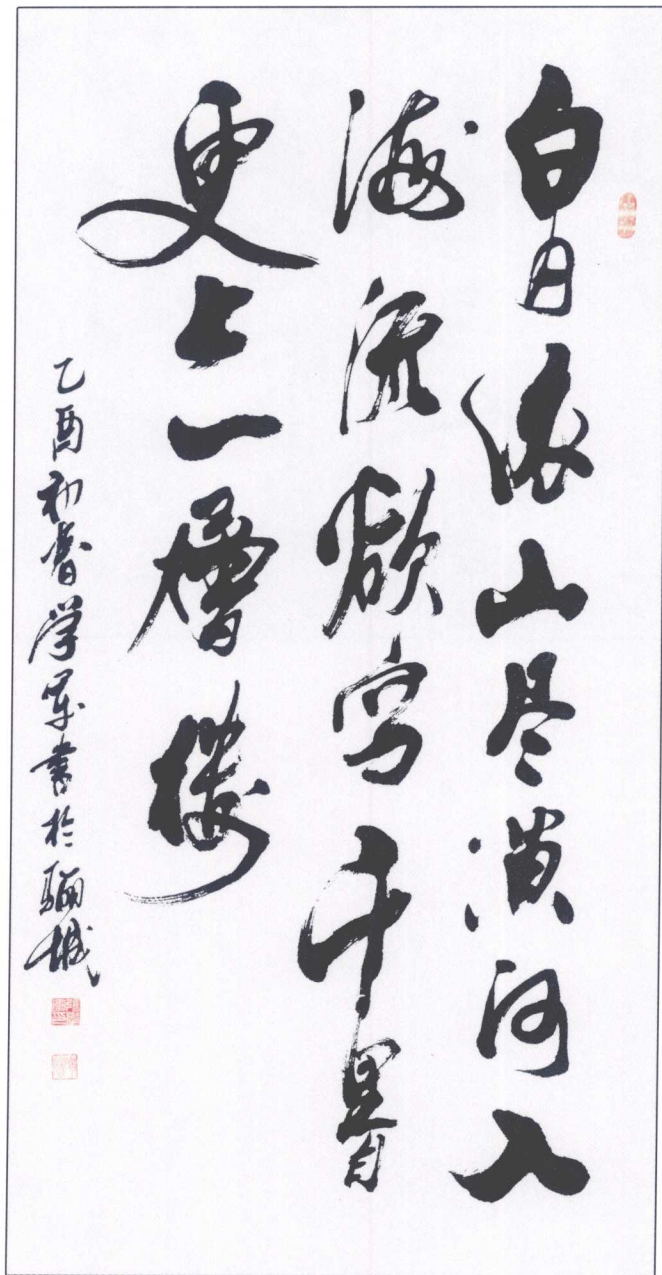 白日依山尽黄河入
海流欲穷千里目
更上一层楼
乙酉初春学军书于骊城